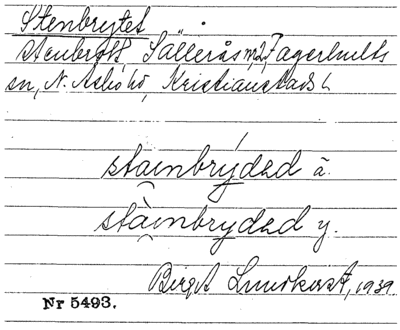 Stenbrytet
stenbrott Sällerås m, 2, Fagerhults
sn, N. Åsbo hd, Kristianstads l.
stainbrýded ä.
stàinbryded y.
Birgit Lundkvist, 1939.
Nr 5493.